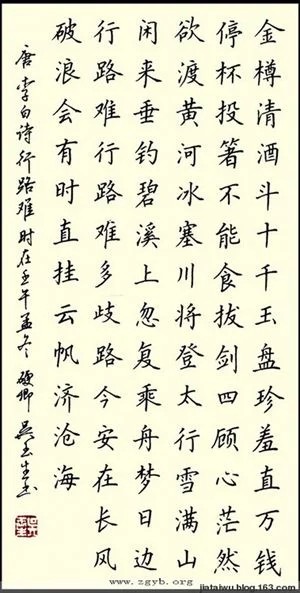 金樽清酒斗十千玉盘珍羞直万钱
停杯投箸不能食拔剑四顾心茫然
欲渡黄河冰塞川将登太行雪满山
闲来垂钓碧溪上忽复乘舟梦日边
行路难行路难多歧路今安在长风
破浪会有时直挂云帆济沧海
唐李白诗行路难时在壬午孟冬硬卿吴玉生书
www.zgyb.org
jiataiwu.blog.163.com